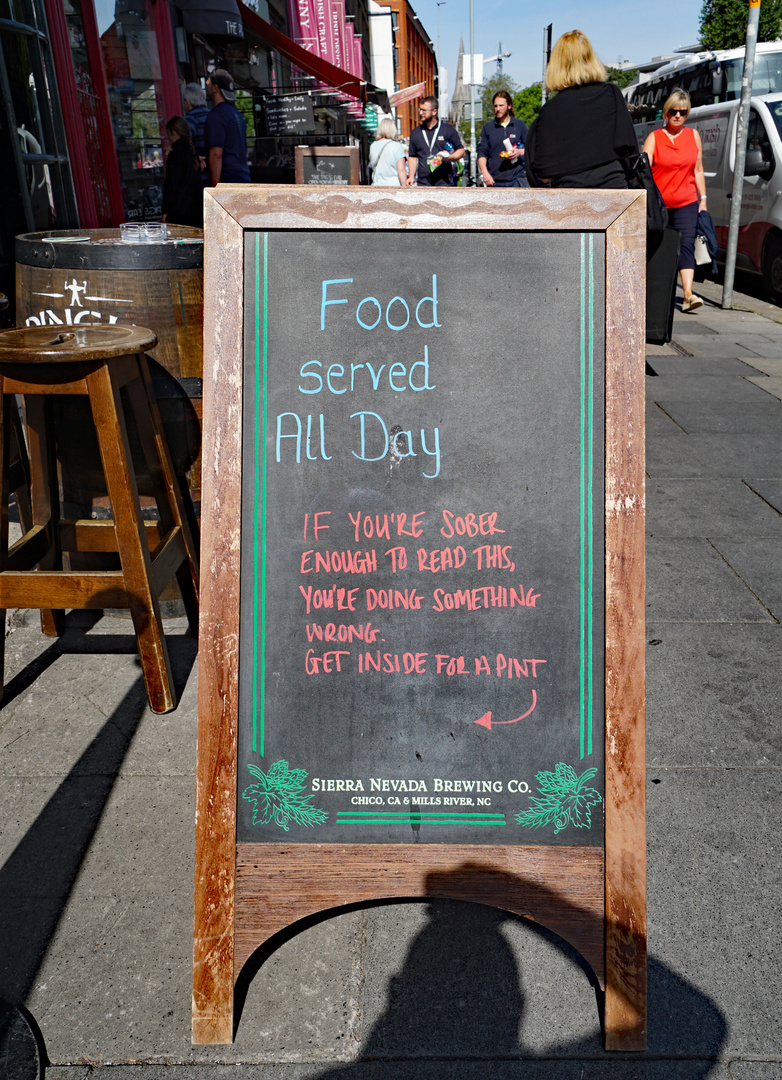 Food
served
All Day
IF YOU'RE SOBER
ENOUGH TO READ THIS,
YOU'RE DOING SOMETHING
WRONG.
GET INSIDE FOR A PINT
SIERRA NEVADA BREWING CO.
CHICO, CA & MILLS RIVER, NC